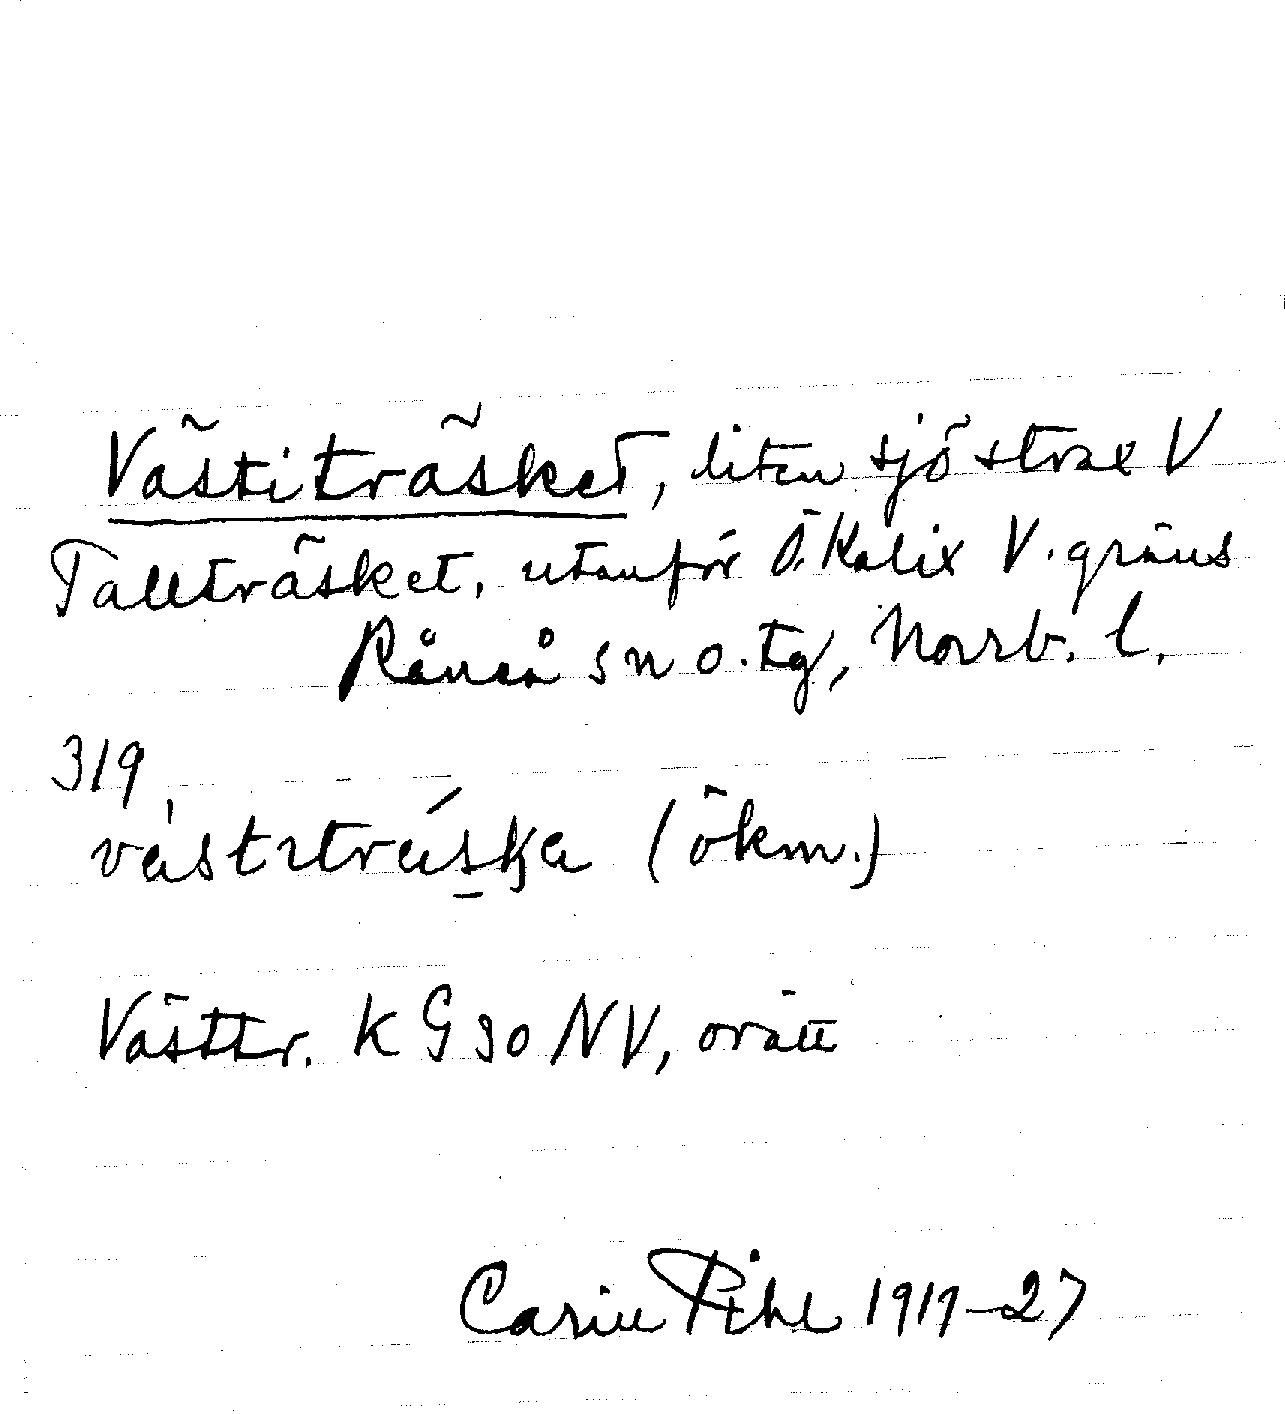 Västiträsket, liten sjö strax V
Tallträsket, utanför Ö. Kalix V. gräns
Råneå sn o. tg, Norrb. l.
319
västıträska (ökm.)
Västtr. K G 30 NV, orätt
Carin Pihl 1919-27